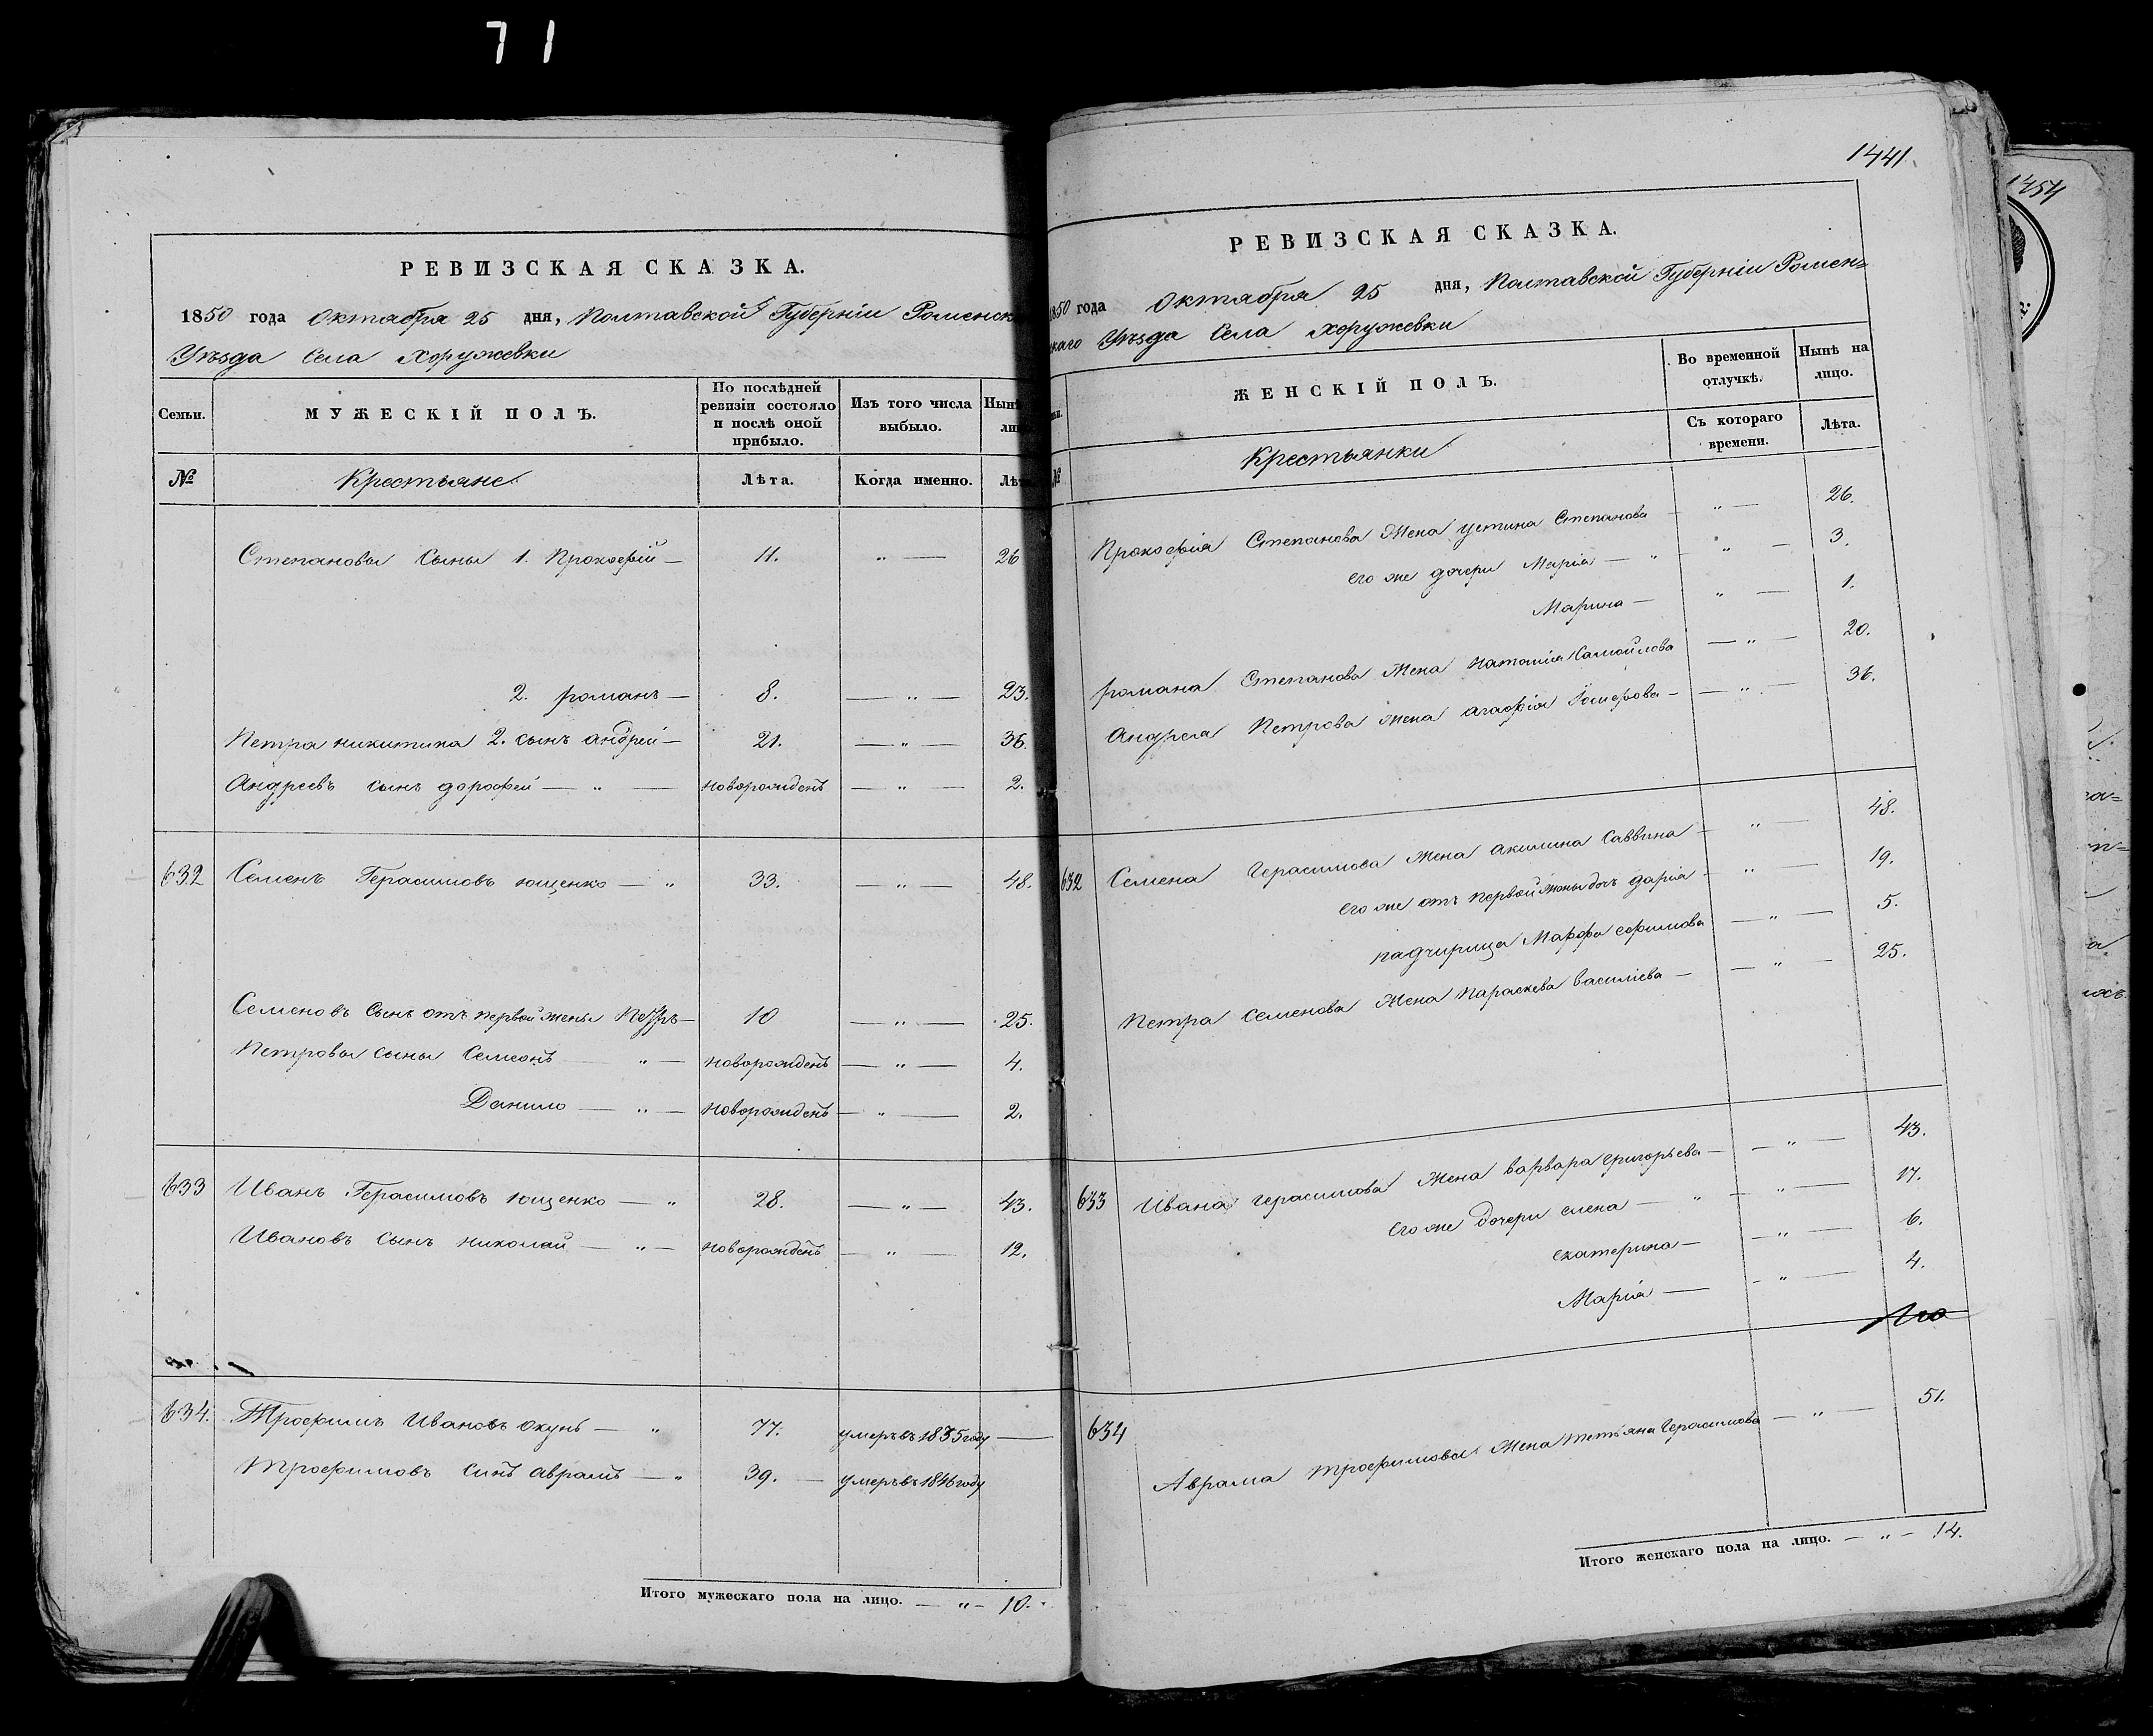 71
РЕВИЗСКАЯ СКАЗКА.
1850 года Октября 25 дня, Полтавской Губерніи Роменск
Уѣзда Села Хоружевки
Семьи.
МУЖЕСКІЙ ПОЛЪ.
По послѣдней ревизіи состояло и послѣ оной прибыло.
Изъ того числа выбыло.
Нын
№
Крестьяне
Лѣта.
Когда именно.
Лѣт
Степановы Сыны 1. Прокофій — 11. „ — 26
2. романъ — 8. — „ — 23.
Петра никитина 2. сынъ андрей — 21. — „ — 36.
Андреевъ сынъ дорофей — „ — новорожденъ — „ — 2.
632 Семенъ Герасимовъ ющенко — „ 33. — „ — 48.
Семеновъ Сынъ отъ первой жены Петръ — 10 — „ — 25.
Петровы сыны Семеонъ — „ — новорожденъ — „ — 4.
Данило — „ — новорожденъ — „ — 2.
633 Иванъ Герасимовъ ющенко — „ 28. — „ — 43.
Ивановъ сынъ николай — „ — новорожденъ — „ — 12.
634. Трофимъ Ивановъ окунь — „ 77. умеръ въ 1835 году —
трофимовъ синъ аврамъ — „ 39. — умеръ въ 1846 году
Итого мужескаго пола на лицо. — „ — 10.
1441.
РЕВИЗСКАЯ СКАЗКА.
1850 года Октября 25 дня, Полтавской Губерніи Ромен=
скаго Уѣзда Села Хоружевки
ЖЕНСКІЙ ПОЛЪ.
Во временной отлучкѣ.
Нынѣ на лицо.
Съ котораго времени.
Лѣта.
№
Крестьянки
Прокофія Степанова Жена устина Степанова — „ — 26.
его же дочери Марія — „ — „ — 3.
Марина — „ — 1.
романа Степанова Жена наталія Самойлова — „ — 20.
Андрея Петрова жена агафія — „ — 36.
632 Семена Герасимова Жена акилина саввина — „ — 48.
его же отъ первой жены дочь дарія — „ — 19.
падчирица Марфа ефимова — „ — 5.
Петра семенова Жена параскева василіева — — „ — 25.
633 Ивана герасимова Жена варвара григорьева — — „ — 43.
его же дочери елена — „ — „ — 17.
екатерина — — „ — 6.
Марія — — „ — 4.
634 Аврама трофимова Жена тетьяна Герасимова — „ — 51.
Итого женскаго пола на лицо. — „ — 14.
1454